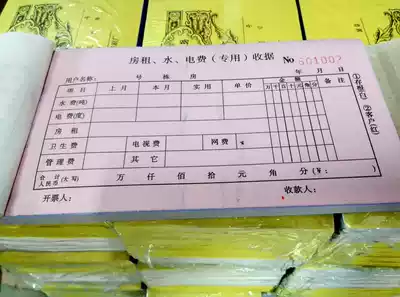 房租、水、电费（专用）收据 No 501002
用户名称： 号 栋 房 年 月 日
项目 上月 本月 实用 单价 金额 备注
万千百十元角分
水费(吨)
电费(度)
房租
卫生费 电视费 网费
管理费 其它
合计人民币(大写) 万 仟 佰 拾 元 角 分(¥： )
开票人： 收款人：
①存根(白) ②客户(红)